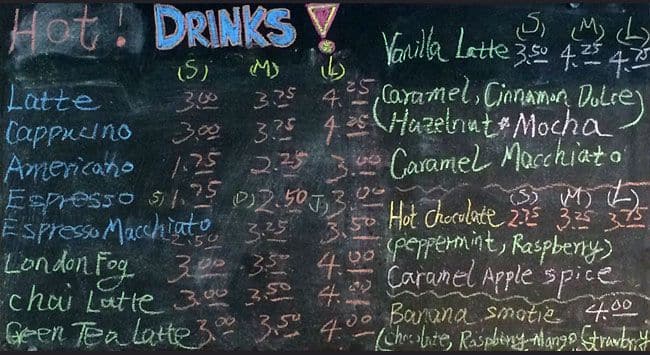 Hot! DRINKS!
(S) (M) (L)
Latte 3.00 3.75 4.25
Cappucino 3.00 3.75 4.25
Americano 1.75 2.25 3.00
Espresso S) 1.75 (D) 2.50 T) 3.00
Espresso Macchiato 2.50 3.25 3.50
London Fog 3.00 3.50 4.00
chai Latte 3.00 3.50 4.00
Green Tea Latte 3.00 3.50 4.00
(S) (M) (L)
Vanilla Latte 3.50 4.25 4.75
(Caramel, Cinnamon Dolce)
Hazelnut * Mocha
Caramel Macchiato
(S) (M) (L)
Hot chocolate 2.75 3.25 3.75
(peppermint, Raspberry)
Caramel Apple spice
Banana smotie 4.00
(chocolate, Raspberry-Mango, Strawberry